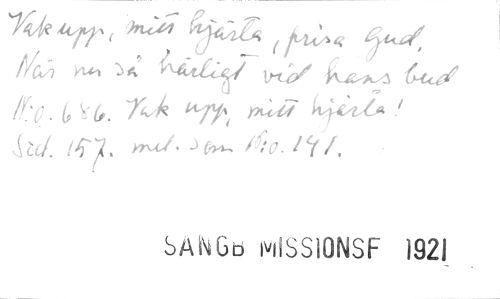 Vak upp, mitt hjärta, prisa Gud,
När nu så härligt vid hans bud
N:o. 686. Vak upp, mitt hjärta!
Sid. 157. mel. som N:o. 141.
SANGB MISSIONSF 1921